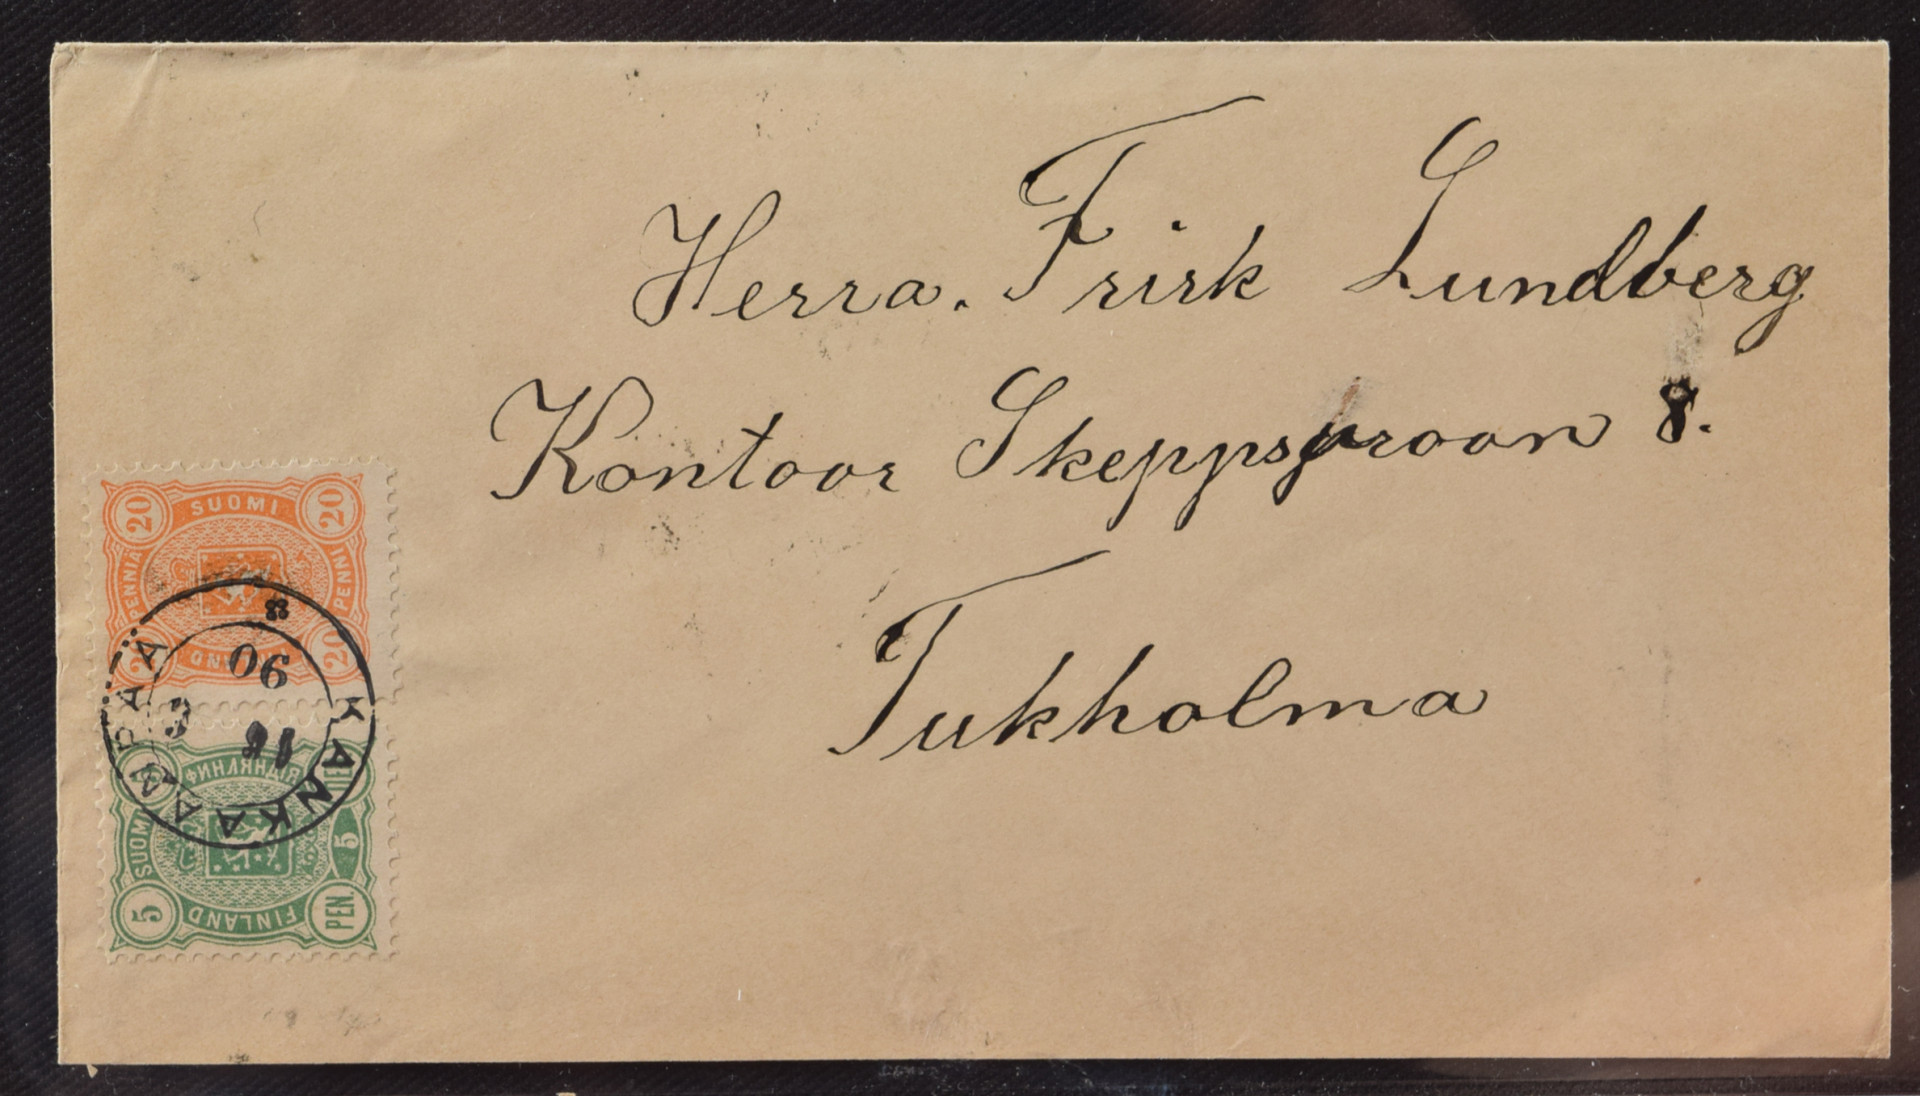 Herra. Frirk Lundberg
Kontoor Skeppsproon 8.
Tukholma
20 SUOMI 20
PENNIÄ PENNI
20 FINLAND 20
KANKAANPÄÄ
90
3
ФИНЛЯНДІЯ
SUOMI 5
5 FINLAND PEN